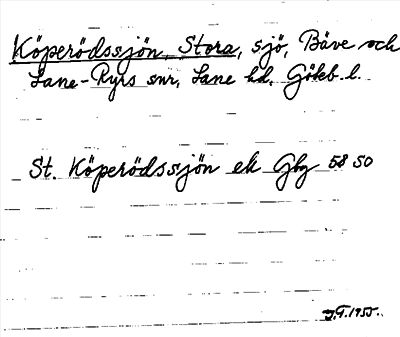 Köperödssjön, Stora, sjö, Bäve och
Lane-Ryrs snr, Lane hd, Göteb. l.
St. Köperödssjön ek Gbg 58 SO
J.G. 1955.